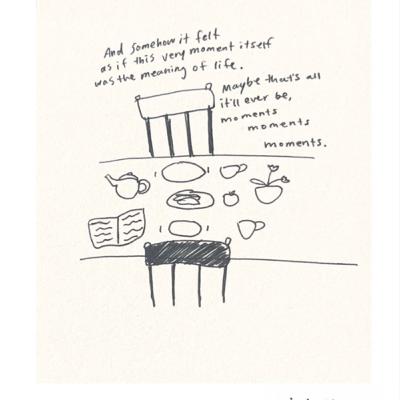 And somehow it felt
as if this very moment itself
was the meaning of life.
Maybe that's all
it'll ever be,
moments
moments
moments.